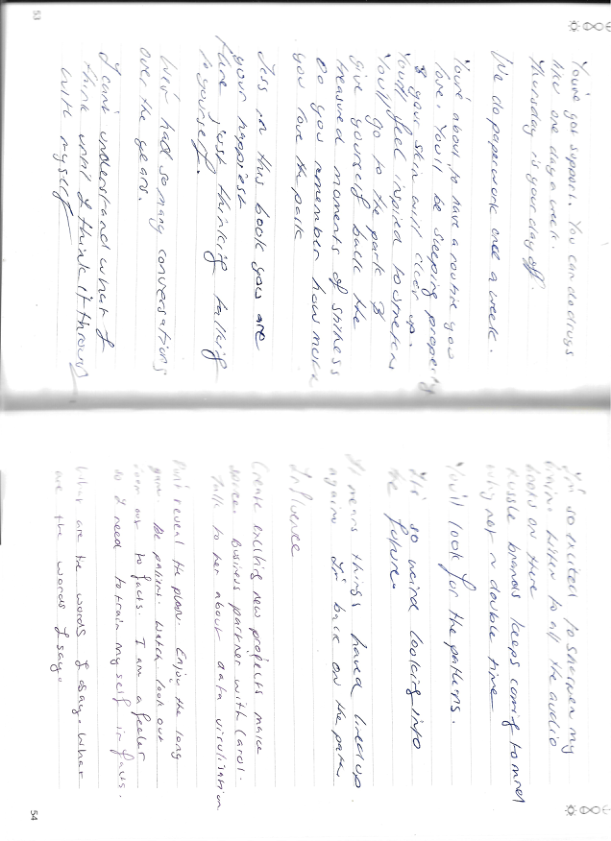 53
You've got support. You can do drugs
like one day a week.
Thursday is your day off.
We do paperwork once a week.
You're about to have a routine you
love. You'll be sleeping properly
& your skin will clear up.
You'll feel inspired to stretch
You'll go to the park &
give yourself back the
treasured moments of stillness
Do you remember how much
you love the park
It's in this book you are
your happiest
Here just thinking talking
to yourself.
We'd had so many conversations
over the years.
I can't understand what I
think until I think it through
with myself
I'm so excited to sharpen my
brain. Listen to all the audio
books on there
Russle brands keeps coming to mind
why not in double time
You'll look for the patterns.
It's so weird looking into
the future.
It means things have lined up
again. I'm back on the path
Influence
Create exciting new projects make
business partner with Carol.
Talk to her about data visulisation
Don't reveal the plan. Enjoy the long
game. Be patient. Watch look out
to facts. I am a feeler
so I need to train my self in facts.
What are the words I say. What
are the words I say.
54